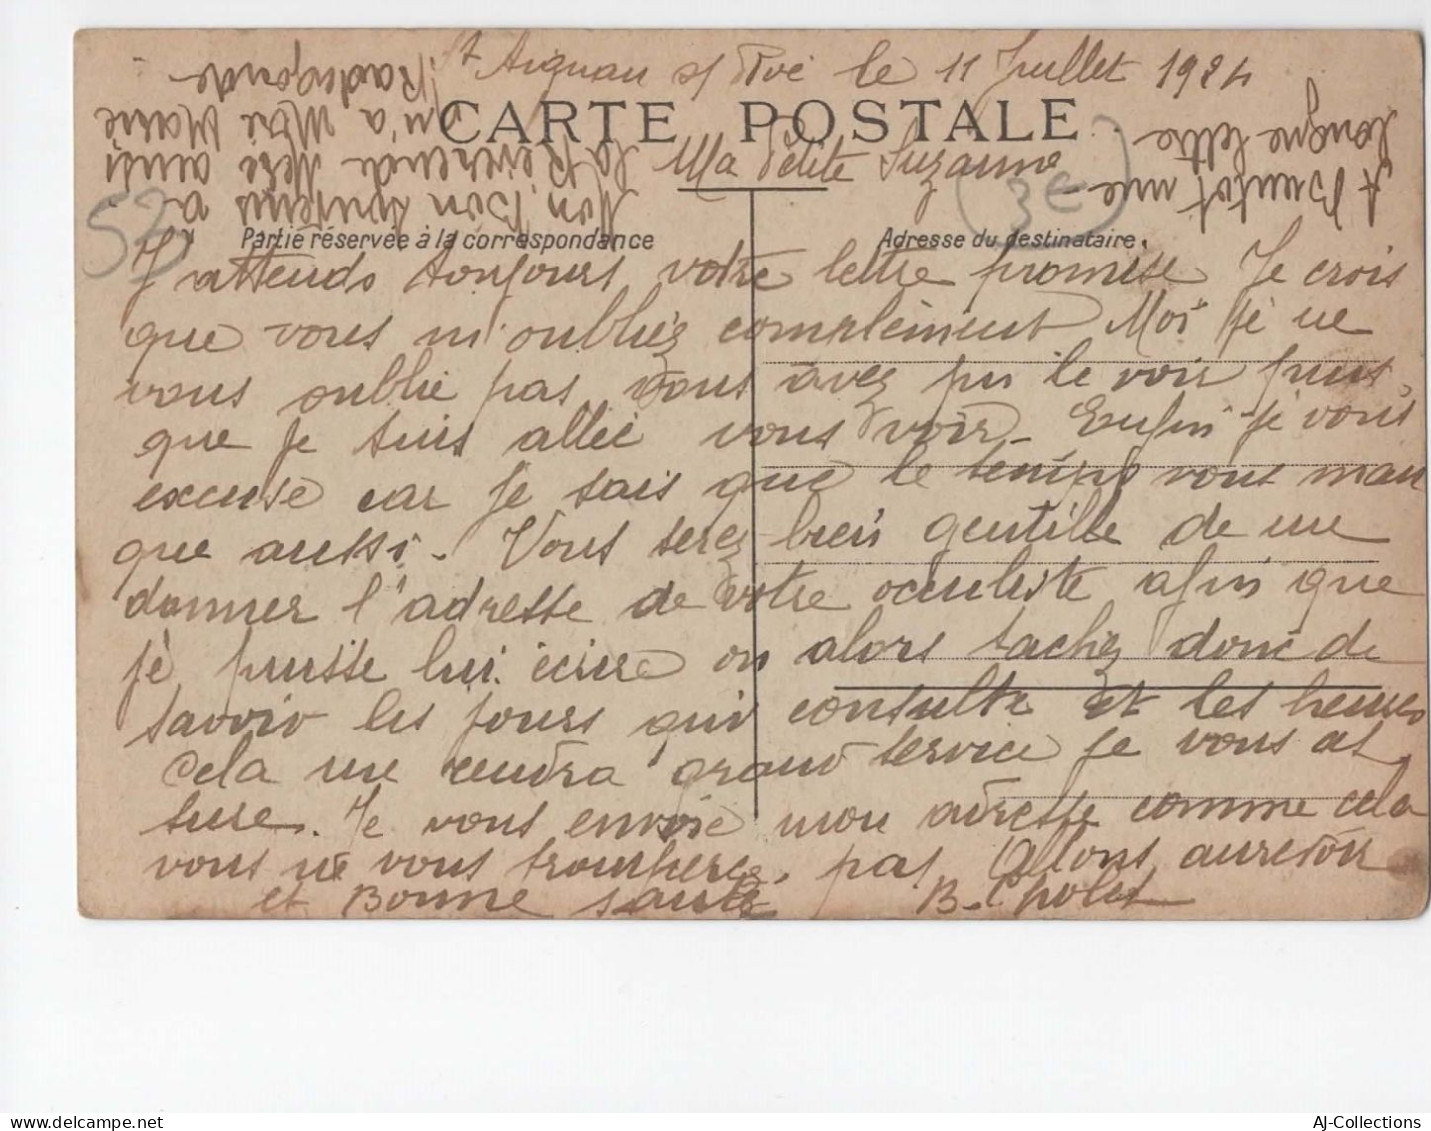 St Aignan s/ Roë le 11 Juillet 1924
CARTE POSTALE
Ma Petite Suzanne
Partie réservée à la correspondance
Adresse du destinataire.
J'attends toujours votre lettre promise Je crois
que vous m'oubliez complèment Moi je ne
vous oublie pas vous avez pu le voir puis
que je suis allée vous voir - Enfin je vous
excuse car je sais que le temps vous man
que aussi. Vous serez bien gentille de me
donner l'adresse de votre oculiste afin que
je puisse lui écire ou alors tachez donc de
savoir les jours qui consulte et les heures
Cela me rendra grand service je vous as
sure. Je vous envoie mon adresse comme cela
vous ne vous tromperez pas Allons aurevoir
et Bonne santé B. Cholet
A Bientot une
longue lettre
Mon Bon souvenir à
la Reverende Mère ainsi
qu'a Mère Marie
Radegonde
57
3€
AJ-Collections